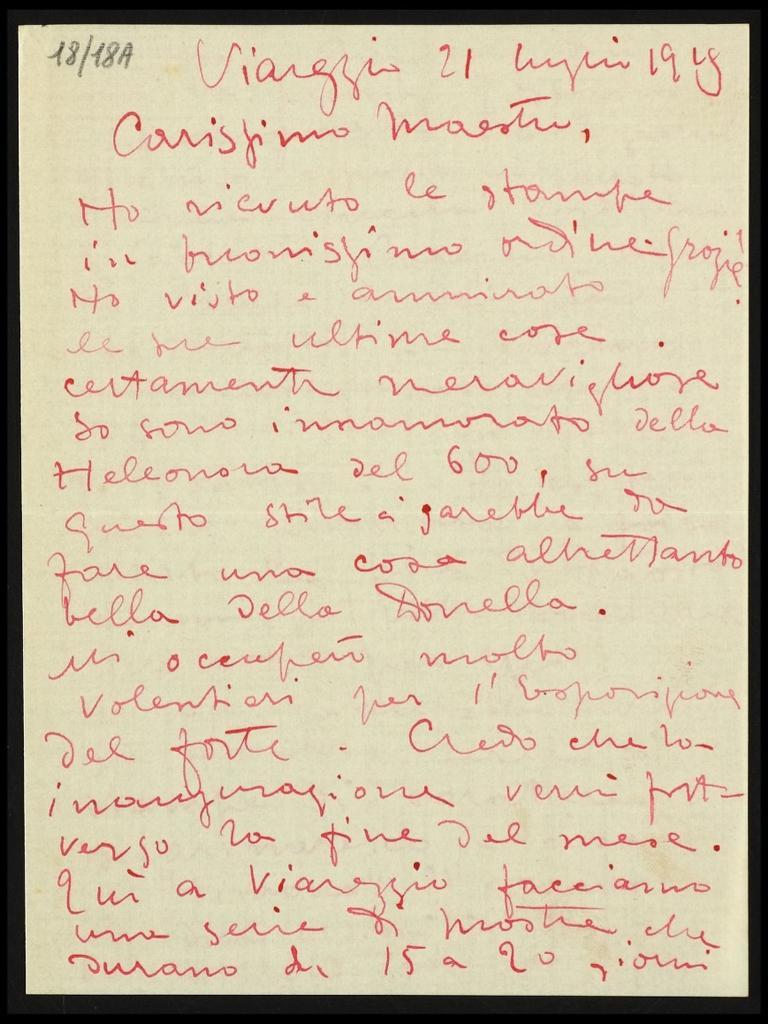 18/18A
Viareggio 21 luglio 1919
Carissimo Maestro,
Ho ricevuto le stampe
in buonissimo ordine. Grazie!
Ho visto e ammirato
le sue ultime cose
certamente meravigliose
Io sono innamorato della
Heleonora del 600, su
questo stile ci sarebbe da
fare una cosa altrettanto
bella della Donella.
Mi occuperò molto
volentieri per l'Esposizione
del forte. Credo che la
inaugurazione verrà fatta
verso la fine del mese.
Quì a Viareggio facciamo
una serie di mostre che
durano da 15 a 20 giorni